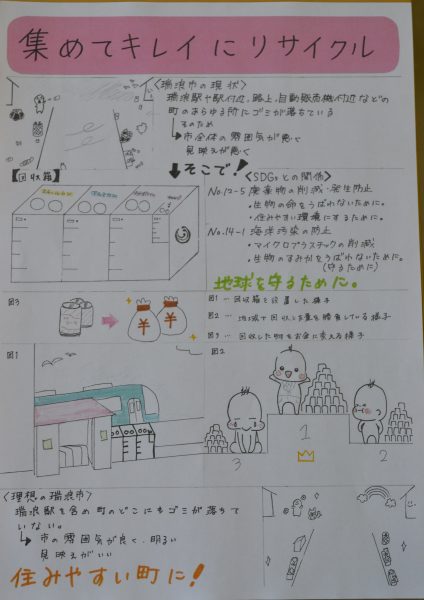 集めてキレイにリサイクル
〈瑞浪市の現状〉
瑞浪駅や駅付近、路上、自動販売機付近などの
町のあらゆる所にゴミが落ちている
そのため
市全体の雰囲気が悪く
見映えが悪く
そこで!
【回収箱】
〈SDGsとの関係〉
No.12-5 廃棄物の削減・発生防止
・生物の命をうばわれないために。
・住みやすい環境にするために。
No.14-1 海洋汚染の防止
・マイクロプラスチックの削減
・生物のすみかをうばわれないために。
(守るために)
地球を守るために。
図3
¥ ¥
図1…回収箱を設置した様子
図2…地域で回収した量を勝負している様子
図3…回収した町をお金に変える様子
図1
図2
1
2
3
〈理想の瑞浪市〉
瑞浪駅を含め町のどこにもゴミが落ちて
いない。
市の雰囲気が良く、明るい
見映えがいい
住みやすい町に!